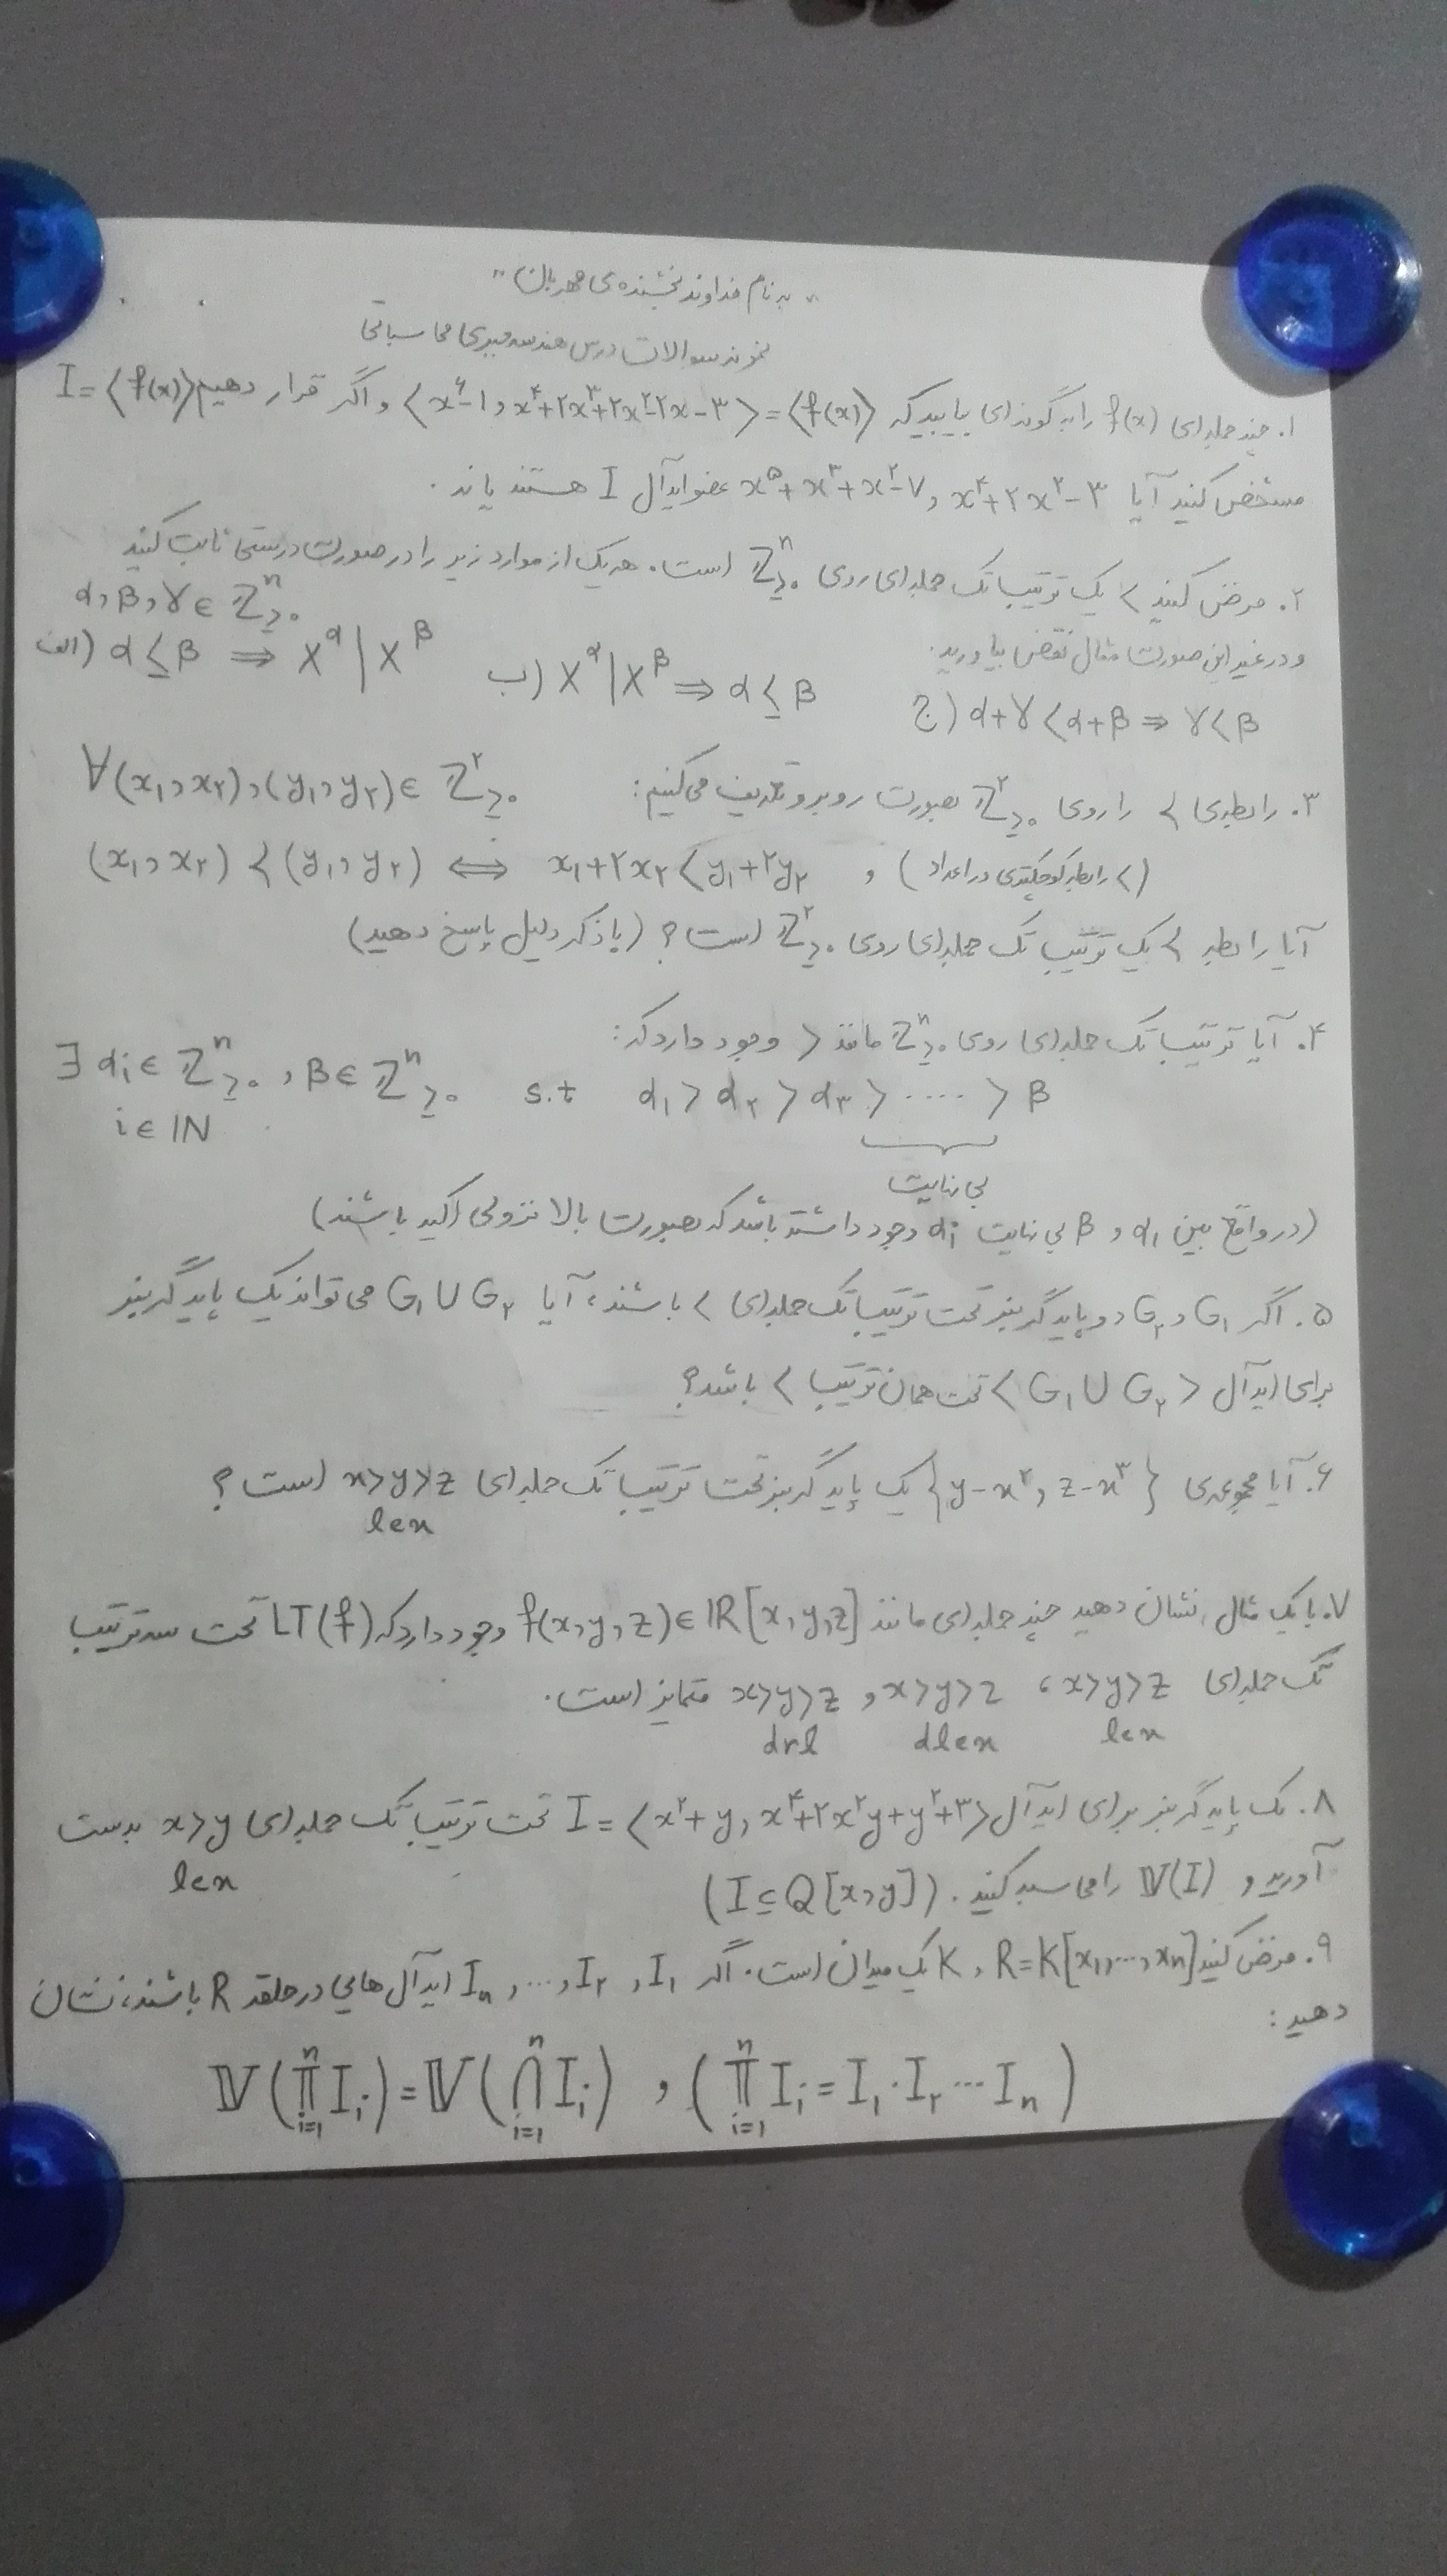 "به نام خداوند بخشنده‌ی مهربان"
نمونه سوالات درس هندسه جبری محاسباتی
۱. چندجمله‌ای f(x) را به گونه‌ای بیابید که ⟨x⁶-1, x⁴+۲x³+۲x²-۲x-۳⟩ = ⟨f(x)⟩ و اگر قرار دهیم I=⟨f(x)⟩
مشخص کنید آیا x⁴+۲x²-۳ و x⁵+x³+x²-۷ عضو ایدآل I هستند یا نه.
۲. فرض کنید < یک ترتیب تک جمله‌ای روی ℤⁿ≥۰ است. هر یک از موارد زیر را در صورت درستی ثابت کنید
و در غیر این صورت مثال نقض بیاورید. α,β,γ∈ ℤⁿ≥۰
الف) α≤β ⇒ X^α | X^β ب) X^α | X^β ⇒ α≤β ج) α+γ<α+β ⇒ γ<β
۳. رابطه‌ی ≺ را روی ℤ²≥۰ بصورت روبرو تعریف می‌کنیم: ∀(x₁,x₂),(y₁,y₂)∈ ℤ²≥۰
(x₁,x₂) ≺ (y₁,y₂) ⟺ x₁+۲x₂ < y₁+۲y₂ و (< رابطه کوچکتری در اعداد)
آیا رابطه ≺ یک ترتیب تک جمله‌ای روی ℤ²≥۰ است؟ (با ذکر دلیل پاسخ دهید)
۴. آیا ترتیب تک جمله‌ای روی ℤⁿ≥۰ مانند < وجود دارد که:
∃ αᵢ∈ ℤⁿ≥۰, β∈ ℤⁿ≥۰ s.t α₁ > α₂ > α₃ > ..... > β
i∈ℕ
بی نهایت
(در واقع بین α₁ و β بی نهایت αᵢ وجود داشته باشد که بصورت بالا نزولی اکید باشند)
۵. اگر G₁ و G₂ دو پایه گربنر تحت ترتیب تک جمله‌ای < باشند، آیا G₁∪G₂ می تواند یک پایه گربنر
برای ایدآل <G₁∪G₂> تحت همان ترتیب < باشد؟
۶. آیا مجموعه‌ی {y-x², z-x³} یک پایه گربنر تحت ترتیب تک جمله‌ای x>y>z است؟
lex
۷. با یک مثال نشان دهید چندجمله‌ای مانند f(x,y,z)∈ℝ[x,y,z] وجود دارد که LT(f) تحت سه ترتیب
تک جمله‌ای x>y>z ، x>y>z و x>y>z متمایز است.
lex dlex drl
۸. یک پایه گربنر برای ایدآل I=⟨x²+y, x⁴+۲x²y+y²+۳⟩ تحت ترتیب تک جمله‌ای x>y بدست
lex
آورید و 𝕍(I) را محاسبه کنید. (I⊆Q[x,y])
۹. فرض کنید R=K[x₁,...,xₙ] و K یک میدان است. اگر I₁, I₂, ..., Iₙ ایدآل هایی در حلقه R باشند، نشان
دهید:
𝕍(∏ⁿᵢ₌₁ Iᵢ) = 𝕍(⋂ⁿᵢ₌₁ Iᵢ) , (∏ⁿᵢ₌₁ Iᵢ = I₁·I₂ ... Iₙ)